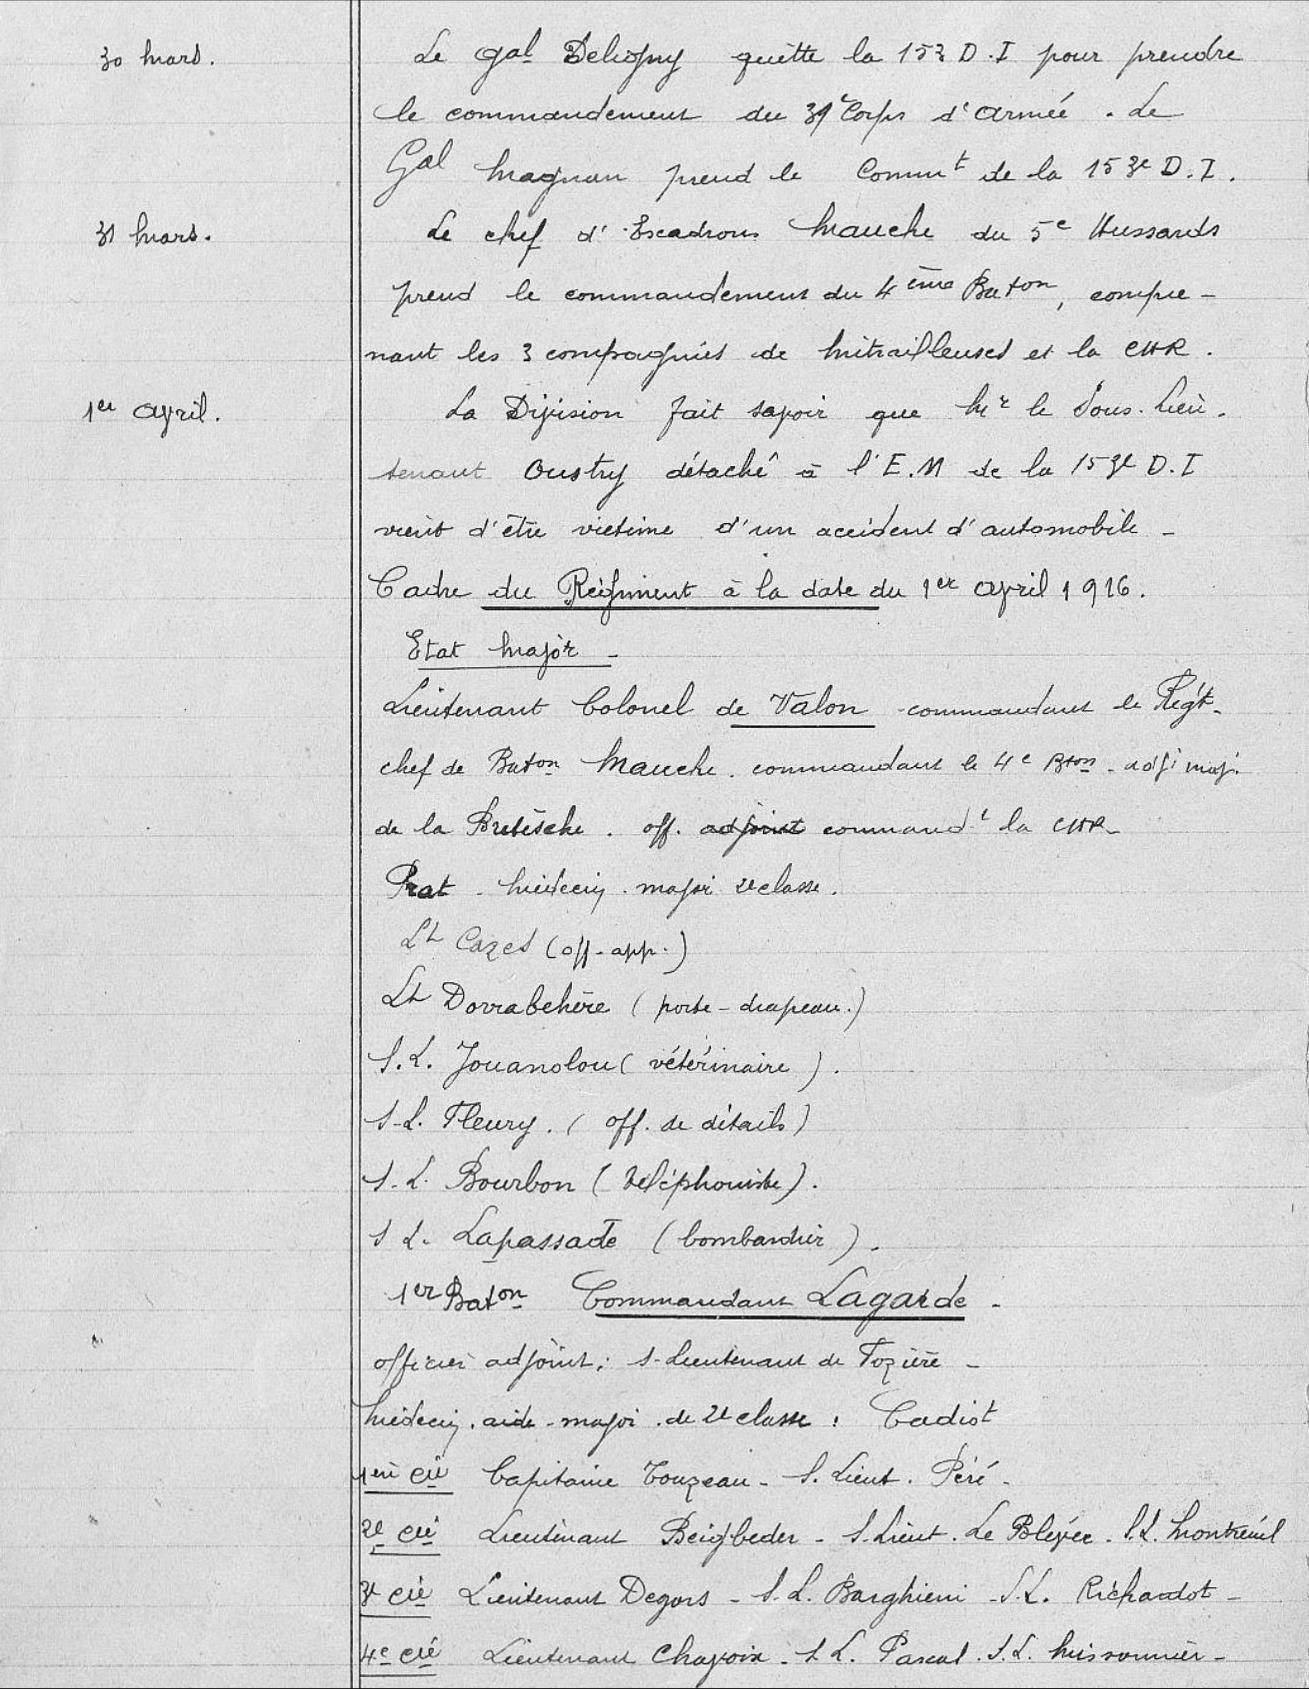 30 Mars. Le Gal Deligny quitte la 153 D.I pour prendre
le commandement du 39e Corps d'Armée. Le
Gal Magnan prend le Commt de la 153e D.I.
31 Mars. Le chef d'Escadrons Mauche du 5e Hussards
prend le commandement du 4ème Baton, compre-
nant les 3 compagnies de Mitrailleuses et la CHR.
1er Avril. La Division fait savoir que Mr le Sous-Lieu-
tenant Oustry détaché à l'E.M de la 153e D.I
vient d'être victime d'un accident d'automobile -
Cadre du Régiment à la date du 1er Avril 1916.
Etat Major -
Lieutenant Colonel de Valon commandant le Régt.
chef de Baton Mauche. commandant le 4e Bton - adjt maj.
de la Bretèsche. off. adjoint command.t la CHR -
Prat - Médecin major 2e classe.
Lt Cazes (off. app.)
Lt Dorrabehère (porte-drapeau.)
S.L. Jouanolou (vétérinaire).
S-L. Fleury. (off. de détails)
S.L. Bourbon (téléphoniste).
S L. Lapassade (bombardier).
1er Baton Commandant Lagarde -
officier adjoint: S-Lieutenant de Fozière -
Médecin. aide-major. de 2e classe: Cadiot
1ère Cie Capitaine Touzeau - S. Lieut. Péré -
2e Cie Lieutenant Beigbeder - S. Lieut. Le Bleyée. S.L. Montreuil
3e Cie Lieutenant Degors - S.L. Barghieni - S.L. Richardot -
4e Cie Lieutenant Chapoix - S L. Pascal. S.L. Missonnier -